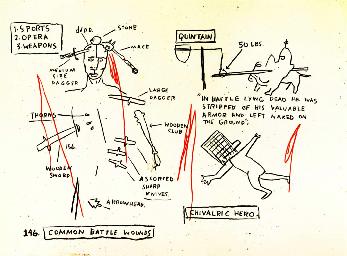 1. SPORTS
2. OPERA
3. WEAPONS
dead.
STONE
MACE
MEDIUM
SIZE
DAGGER
LARGE
DAGGER
THORNS
WOODEN
CLUB
156
WOODEN
SWORD
ASSORTED
SHARP
KNIVES.
ARROWHEAD.
146. COMMON BATTLE WOUNDS
QUINTAIN
50 LBS.
"IN BATTLE LYING DEAD HE WAS
STRIPPED OF HIS VALUABLE
ARMOR AND LEFT NAKED ON
THE GROUND".
CHIVALRIC HERO.